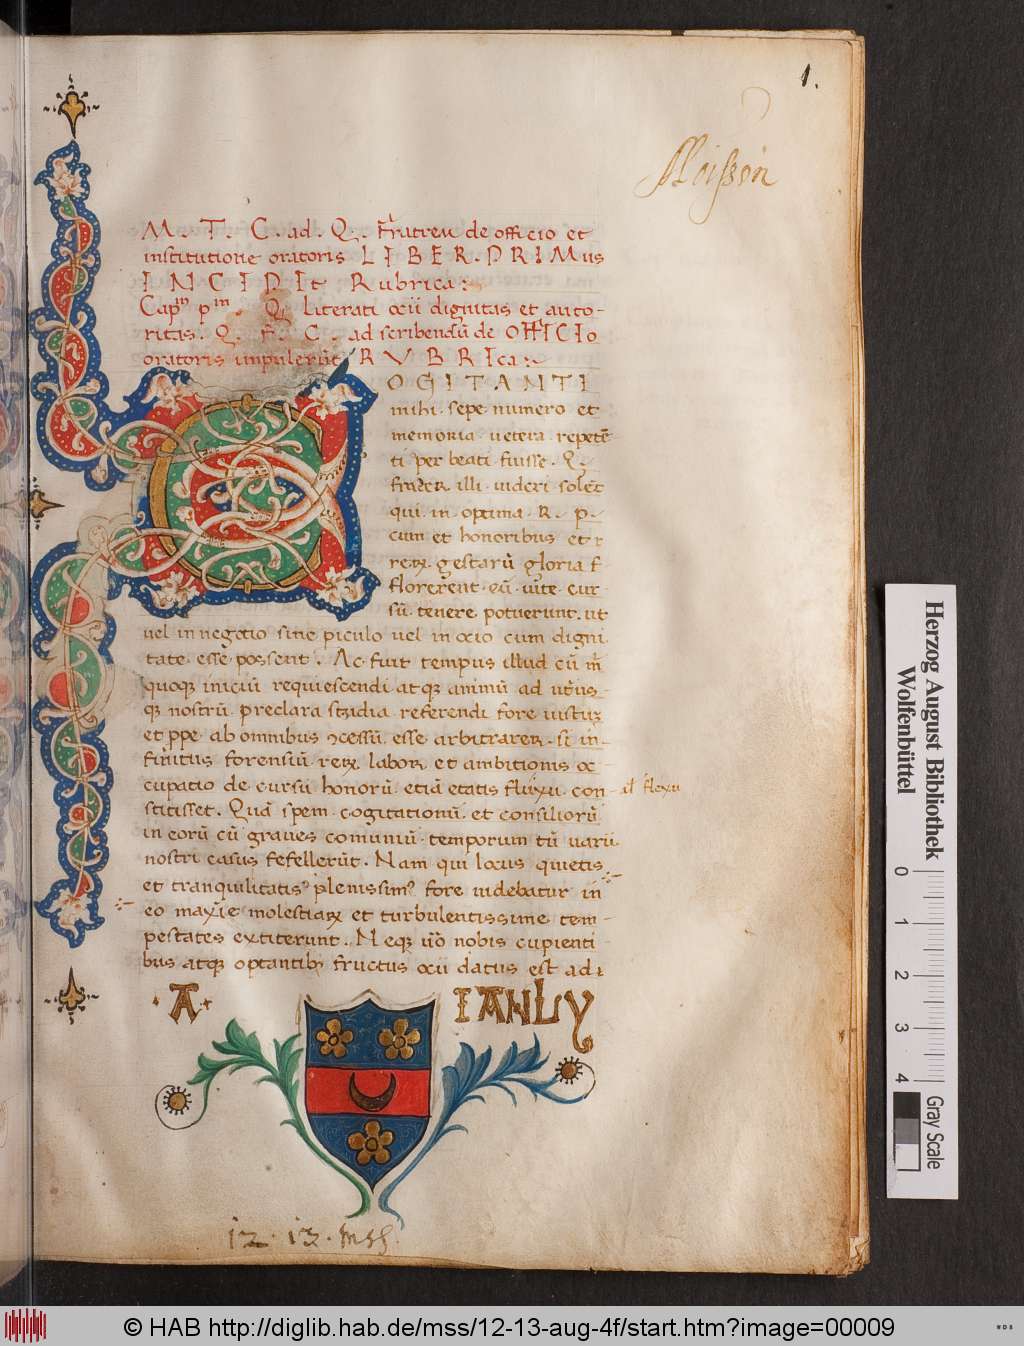 1.
Moisson
M. T. C. ad. Q. fr̃atreu de officio et
institutione oratoris LIBER. PRIMus
INCIPIt Rubrica:
Capᵐ pᵐ. Q. Literati oxii dignitas et auto-
ritas. Q. f̃. C. ad scribendũ de OFFICIO
oratoris impulerũt RVBRIca:
OGITANTI
mihi sepe numero et
memoria vetera repetẽ-
ti per beati fuisse. Q.
frater illi videri solẽt
qui in optima R. p.
cum et honoribus et
rerꝝ gestarũ gloria f
florerent eũ vite cur-
sũ tenere potuerunt ut
uel in negotio sine piculo uel in ocio cum digni
tate esse possent. Ac fuit tempus illud cũ m̃
quoqꝫ iniciũ requiescendi atqꝫ animũ ad utriusꝗ
qꝫ nostrũ preclara studia referendi fore iustuꝫ
et ꝓpe ab omnibus ꝯcessũ esse arbitrarer si in-
finitus forensiũ rerꝝ labor et ambitionis oc-
cupatio de cursũ honorũ etiã etatis fluxu con- al flexu
stitisset. Quã spem cogitationũ et consiliorũ
in eorũ cũ graues comuniũ temporum tũ uarii
nostri casus fefellerũt. Nam qui locus quietis
et tranquilitatis plenissimꝰ fore uidebatur in
eo maxĩe molestiarꝝ et turbulentissime tem-
pestates extiterunt. Neqꝫ ṽo nobis cupienti
bus atqꝫ optantibꝫ fructus oxii datus est ad
A IANLY
12. 13. mss.
Herzog August Bibliothek
Wolfenbüttel
0 1 2 3 4 Gray Scale
© HAB http://diglib.hab.de/mss/12-13-aug-4f/start.htm?image=00009